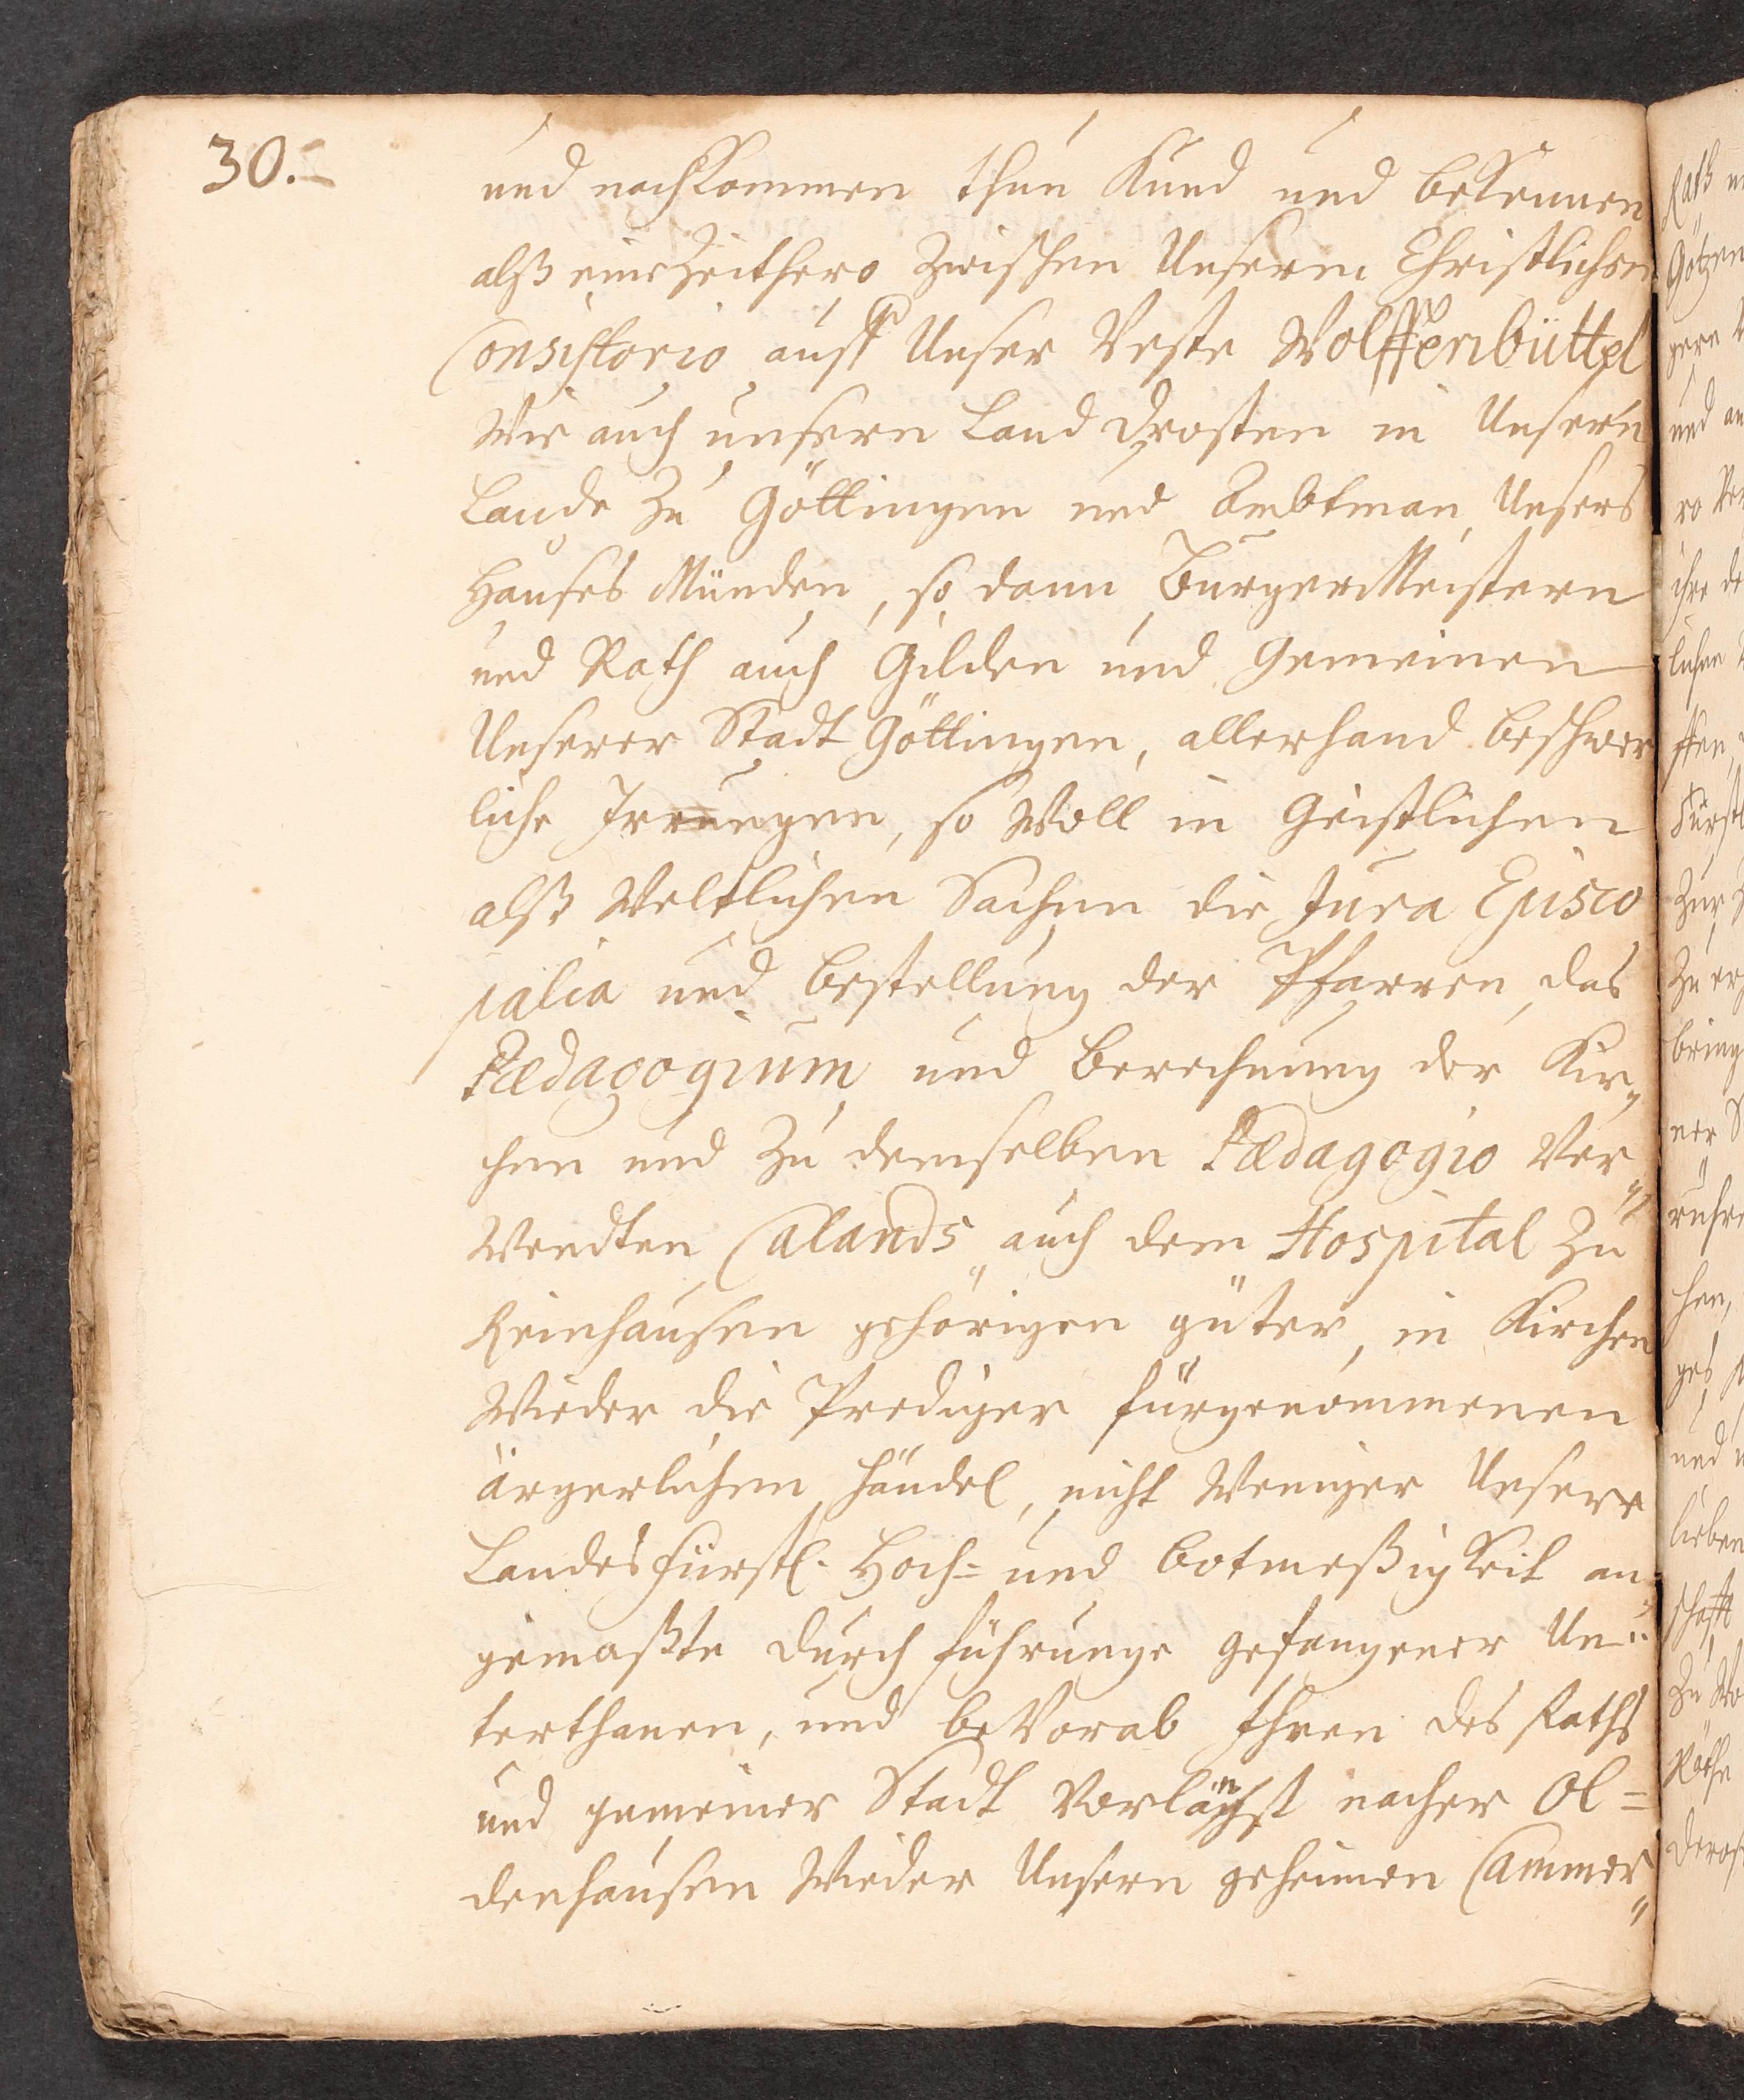 30.
und nachkommen thun Kund und bekennen
alß eine Zeithero zwischen Unserm Christlichen
Consistorio auff Unser Veste Wolffenbüttel
Wie auch unsern Land Drosten in Unserm
Lande zu Göttingen und Ambtman Unsers
Hauses Münden, so dann BurgerMeistern
und Rath auch Gilden und Gemeinen
Unserer Stadt Göttingen, allerhand beschwer
liche Irrungen, so Woll in Geistlichen
alß Weltlichen Sachen die Jura Episco
palia und bestellung der Pfarren, das
Pædagogium und Berechnung der Kir„
chen und zu demselben Pædagogio Ver„
Wendten Calands auch dem Hospital zu
Reinhausen gehörigen güter, in Kirchen
Wieder die Prediger fürgenommenen
ärgerlichen händel, nicht Weniger Unsere
Landesfürstl. Hoch= und botmeßigkeit an„
gemaßte durchführunge gefangener Un„
terthanen, und beVorab Ihren des Raths
und gemeiner Stadt Vorlängst nacher Ol=
denhausen Wieder Unsern geheimen Cammer„